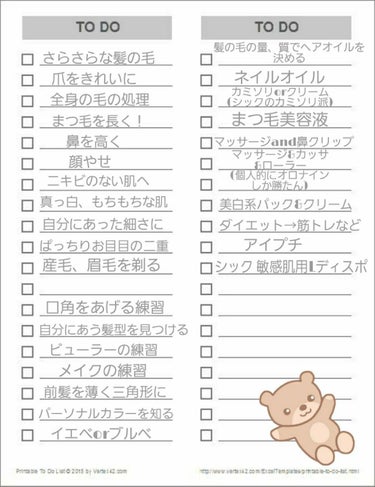 TO DO
さらさらな髪の毛
爪をきれいに
全身の毛の処理
まつ毛を長く！
鼻を高く
顔やせ
ニキビのない肌へ
真っ白、もちもちな肌
自分にあった細さに
ぱっちりお目目の二重
産毛、眉毛を剃る
口角をあげる練習
自分にあう髪型を見つける
ビューラーの練習
メイクの練習
前髪を薄く三角形に
パーソナルカラーを知る
イエベorブルベ
TO DO
髪の毛の量、質でヘアオイルを
決める
ネイルオイル
カミソリorクリーム
(シックのカミソリ派)
まつ毛美容液
マッサージand鼻クリップ
マッサージ&カッサ
&ローラー
(個人的にオロナイン
しか勝たん)
美白系パック&クリーム
ダイエット→筋トレなど
アイプチ
シック 敏感肌用Lディスポ
Printable To Do List © 2015 by Vertex42.com
http://www.vertex42.com/ExcelTemplates/printable-to-do-list.html